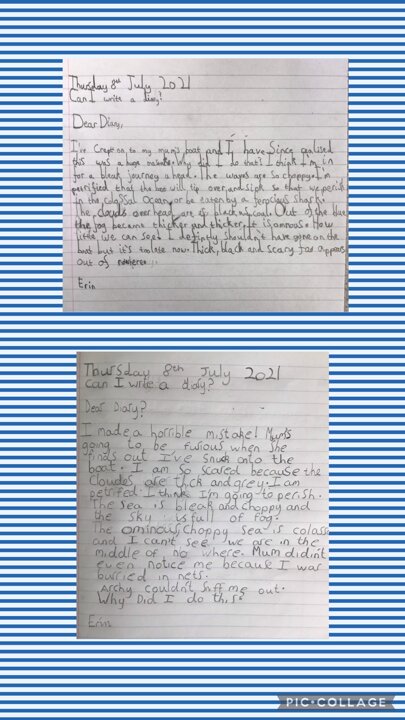 Thursday 8th July 2021
Can I write a diary?
Dear Diary,
I've Crept on to my mum's boat and I have since realised
this was a huge mistake. Why did I do that? I think I'm in
for a bleak journey ahead. The waves are so choppy. I'm
petrified that the boat will tip over and sink so that we perish
in the colossal Ocean or be eaten by a ferocious shark.
The clouds over head are as black as coal. Out of the blue
the fog became thicker and thicker. It is ominous. How
little we can see! I defintly shouldn't have gone on the
boat but it's too late now. Thick, black and scary fog appears
out of nowhere
Erin
Thursday 8th July 2021
Can I write a diary?
Dear Diary?
I made a horrible mistake! Mum's
going to be furious when she
finds out I've snuck onto the
boat. I am so scared because the
cloudes are thick and grey. I am
petrifed I think I'm going to perish.
The sea is bleak and choppy and
the sky is full of fog.
The ominous, choppy sea is colass
and I can't see we are in the
middle of no where. Mum didin't
even notice me becaue I was
burried in nets.
Archy couldn't sniff me out.
Why Did I do this?
Erin
PIC•COLLAGE